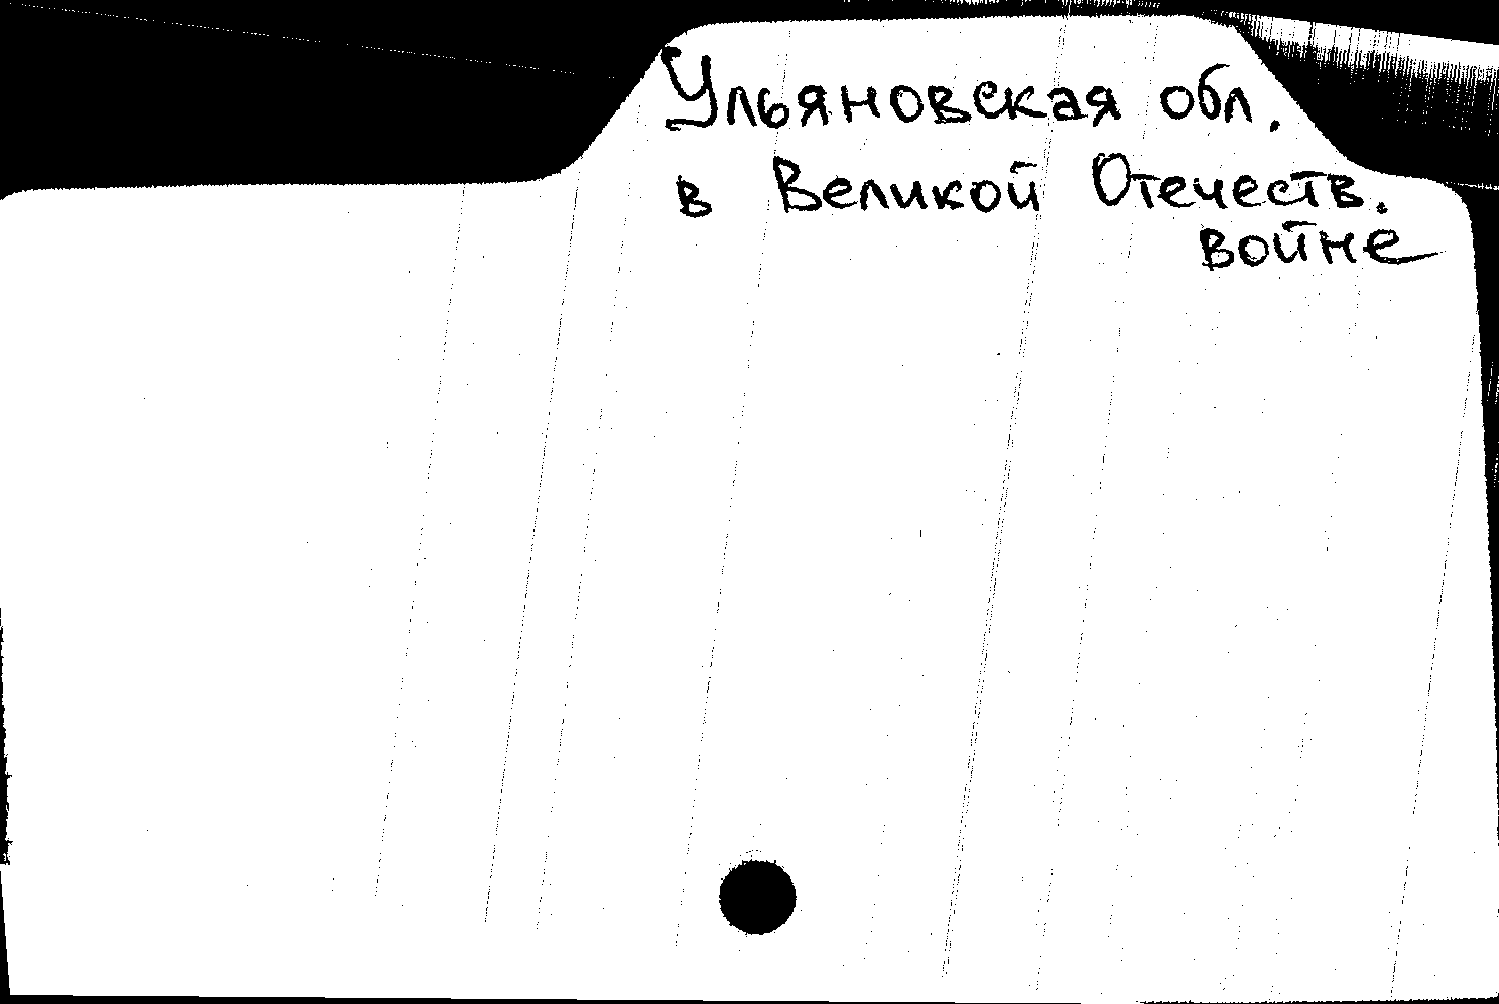 Ульяновская обл.
в Великой Отечеств.
войне